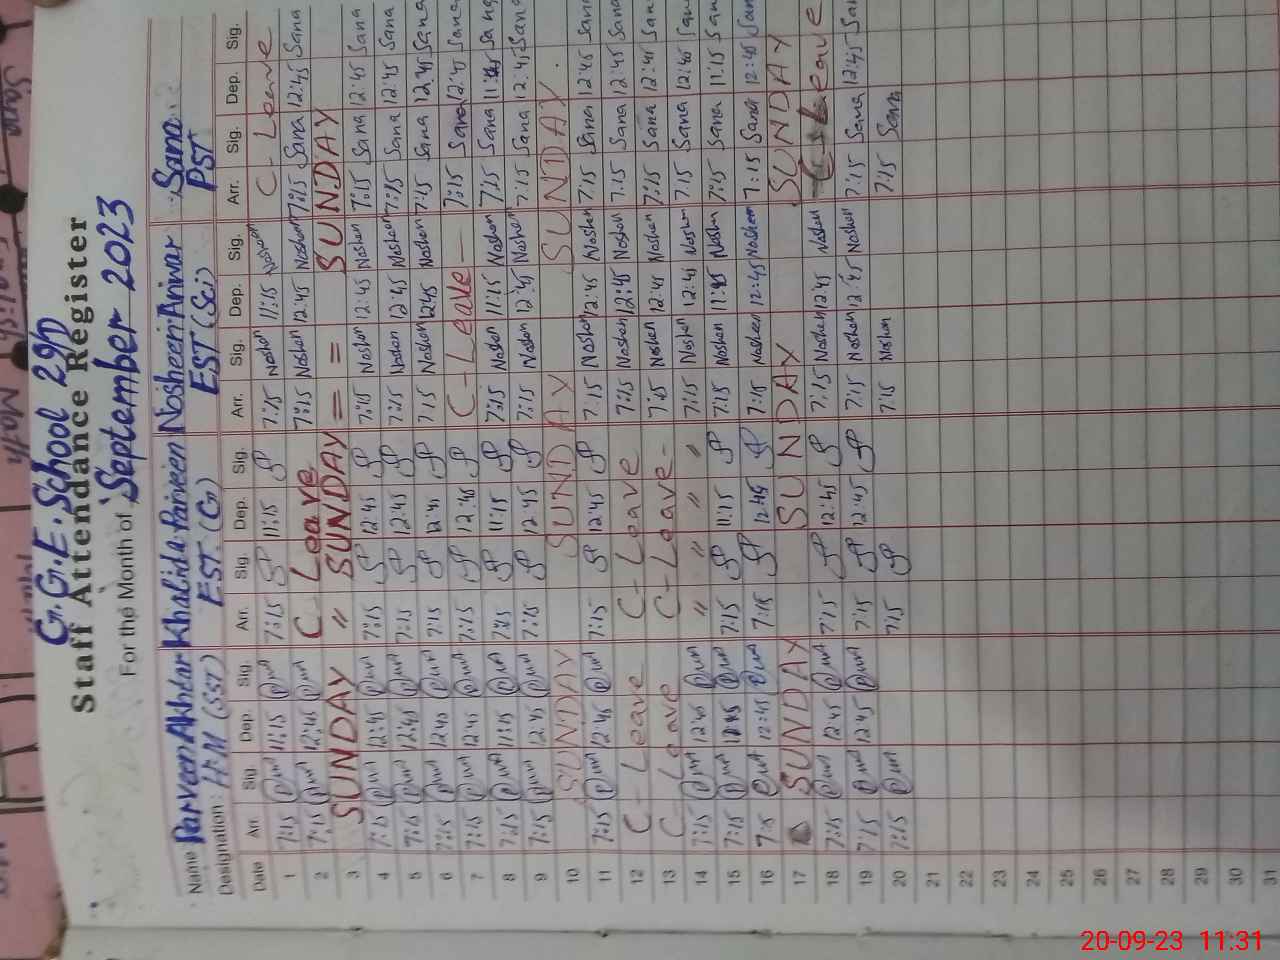 G.G.E. School 29/D
Staff Attendance Register
For the Month of September 2023
Name Parveen Akhtar Khalida Parveen Nosheen Anwar Sana
Designation : H.M (SST) EST. (G) EST (Sci) PST
Date Arr. Sig. Dep. Sig. Arr. Sig. Dep. Sig. Arr. Sig. Dep. Sig. Arr. Sig. Dep. Sig.
1 7:15 11:15 7:15 11:15 7:15 Noshen 11:15 Noshen C - Leave
2 7:15 12:45 C Leave 7:15 Noshen 12:45 Noshen 7:15 Sana 12:45 Sana
3 SUNDAY " SUNDAY = = SUNDAY
4 7:15 12:45 7:15 12:45 7:15 Noshen 12:45 Noshen 7:15 Sana 12:45 Sana
5 7:15 12:45 7:15 12:45 7:15 Noshen 12:45 Noshen 7:15 Sana 12:45 Sana
6 7:15 12:45 7:15 12:45 7:15 Noshen 12:45 Noshen 7:15 Sana 12:45 Sana
7 7:15 12:45 7:15 12:45 C - Leave - 7:15 Sana 12:45 Sana
8 7:15 11:15 7:15 11:15 7:15 Noshen 11:15 Noshen 7:15 Sana 11:15 Sana
9 7:15 12:45 7:15 12:45 7:15 Noshen 12:45 Noshen 7:15 Sana 12:45 Sana
10 SUNDAY SUNDAY SUNDAY
11 7:15 12:45 7:15 12:45 7:15 Noshen 12:45 Noshen 7:15 Sana 12:45 Sana
12 C - Leave C - Leave 7:15 Noshen 12:45 Noshen 7:15 Sana 12:45 Sana
13 C - Leave C - Leave - 7:15 Noshen 12:45 Noshen 7:15 Sana 12:45 Sana
14 7:15 12:45 " " " " 7:15 Noshen 12:45 Noshen 7:15 Sana 12:45 Sana
15 7:15 11:15 7:15 11:15 7:15 Noshen 11:15 Noshen 7:15 Sana 11:15 Sana
16 7:15 12:45 7:15 12:45 7:15 Nosheen 12:45 Nosheen 7:15 Sana 12:45 Sana
17 SUNDAY SUNDAY SUNDAY
18 7:15 12:45 7:15 12:45 7:15 Noshen 12:45 Noshen Leave
19 7:15 12:45 7:15 12:45 7:15 Noshen 12:45 Noshen 7:15 Sana 12:45 Sana
20 7:15 7:15 7:15 Noshen 7:15 Sana
21
22
23
24
25
26
27
28
29
30
31
20-09-23 11:31